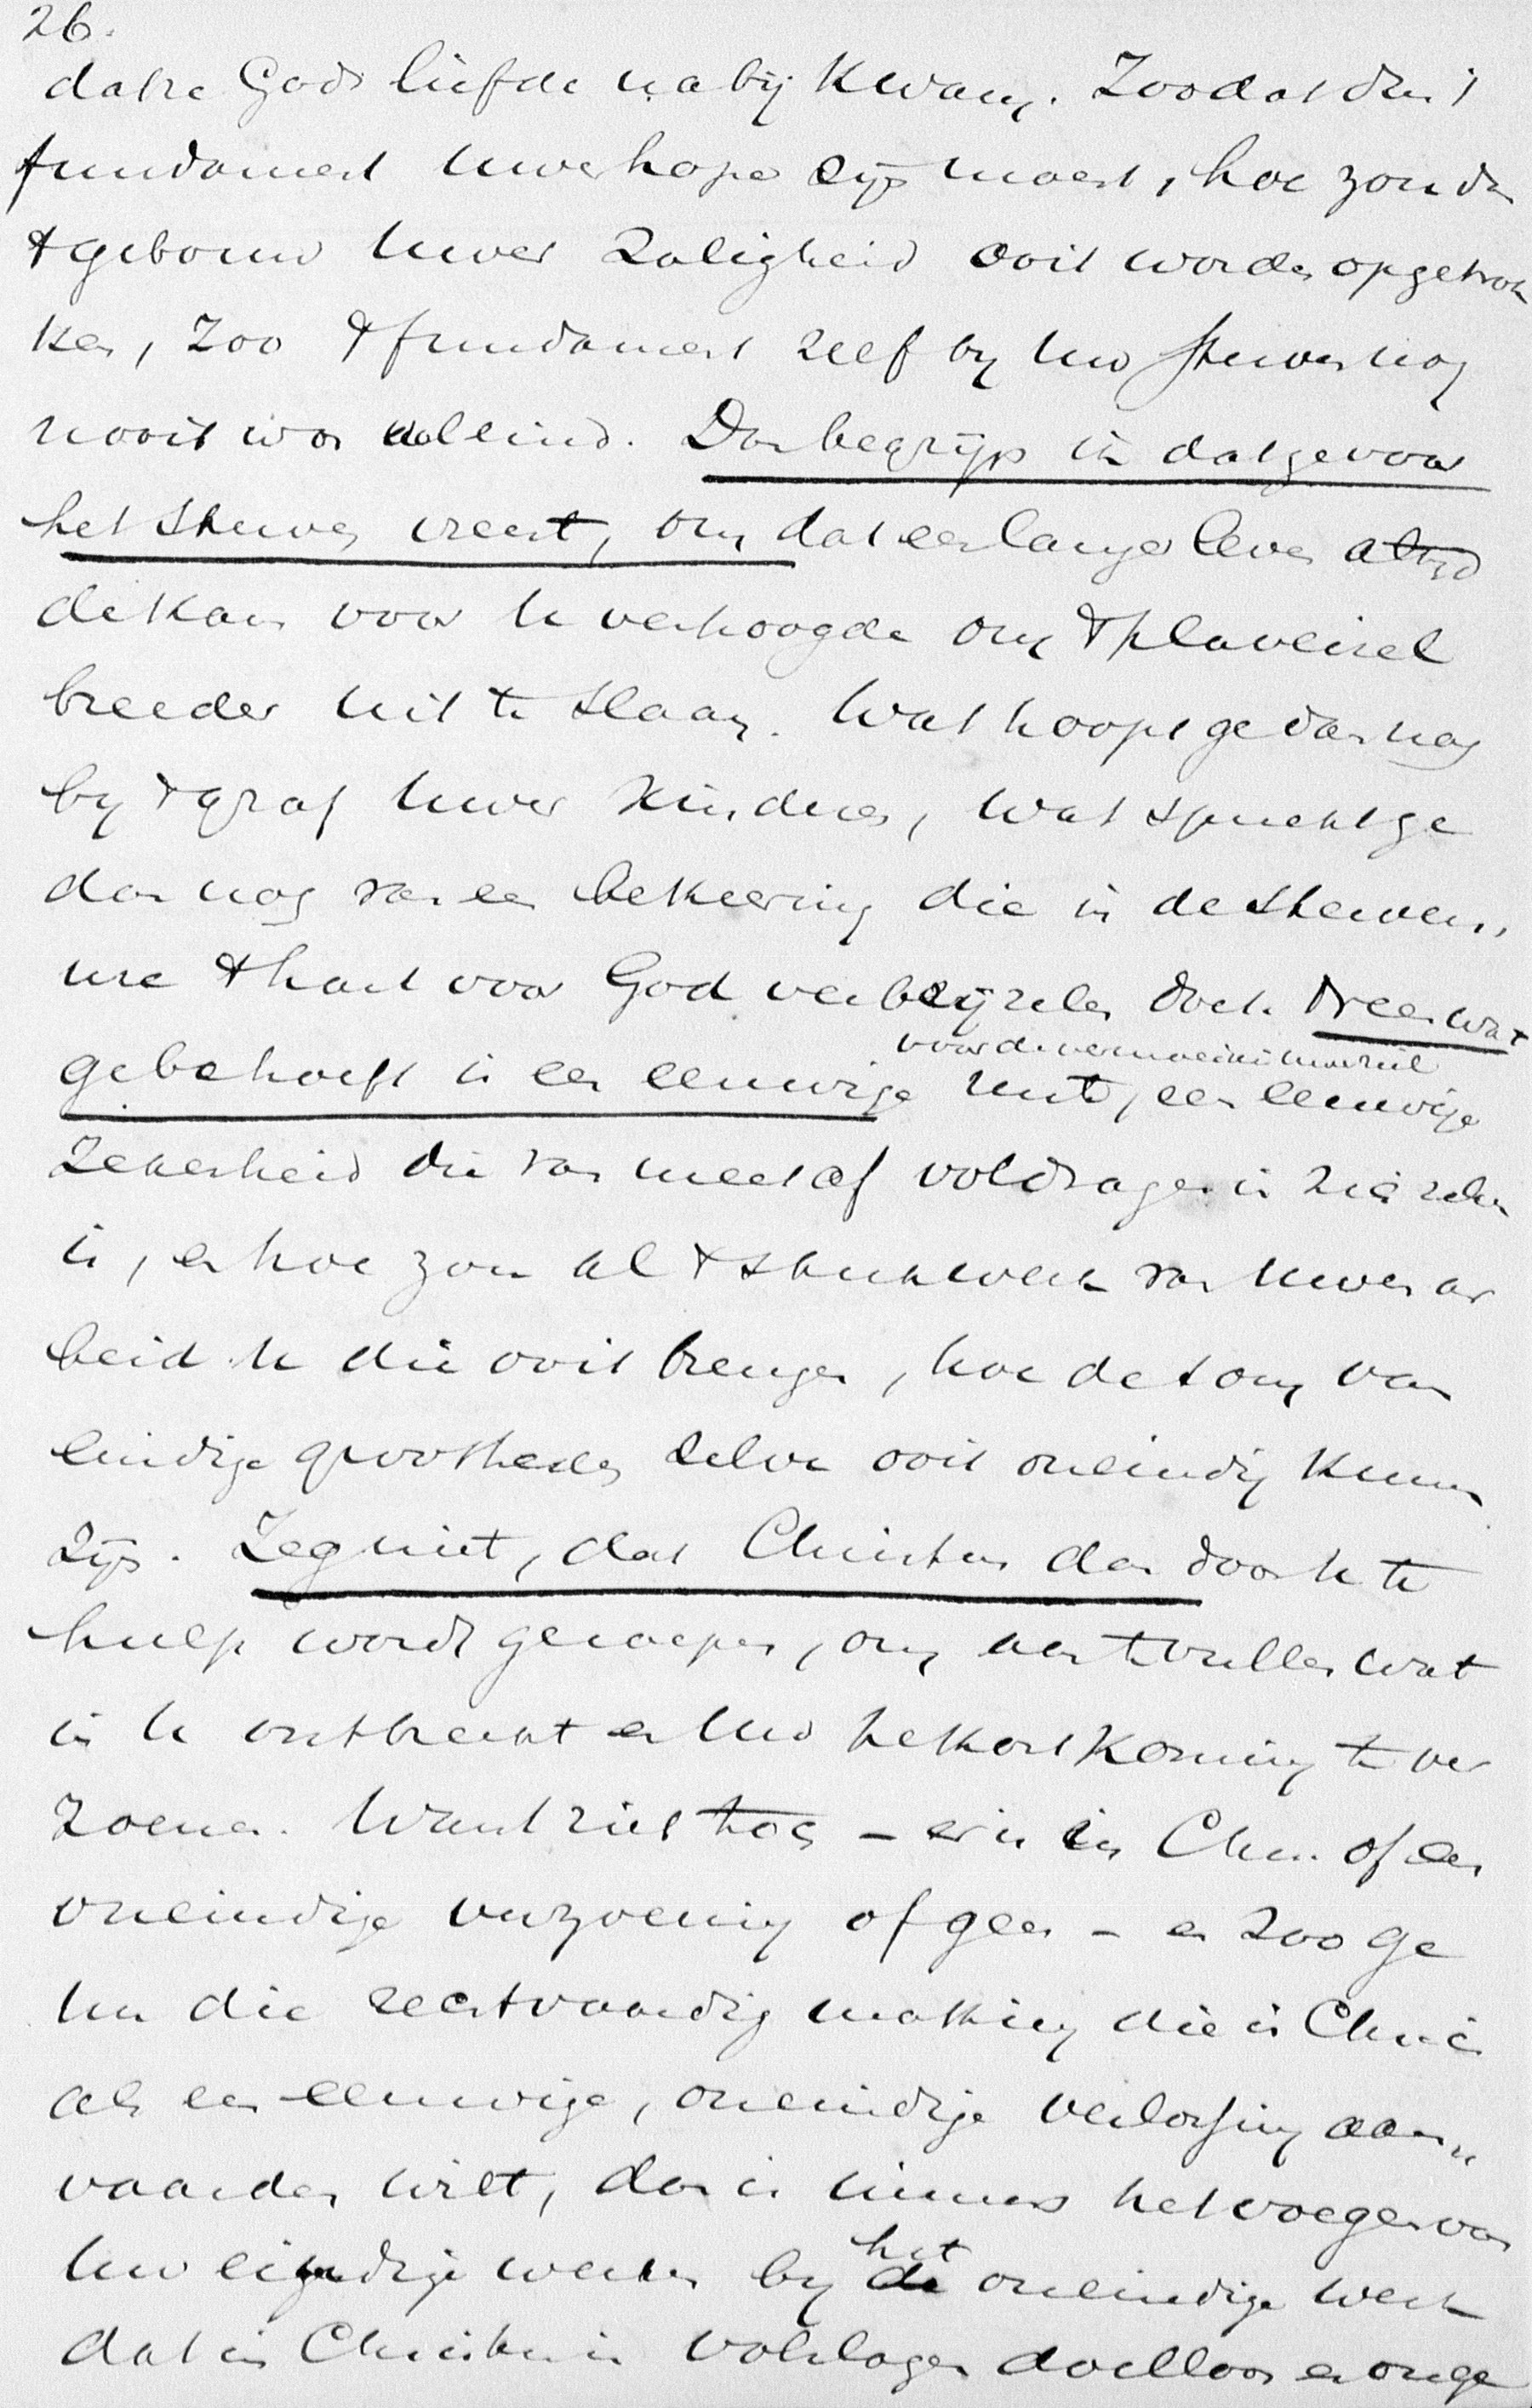 26.
dat ze Gods liefde nabij kwam. Zoo dat dus 't
fundament uwer hope zijn moest, hoe zou dan
't gebouw uwer zaligheid ooit worden opgetrok
ken, zoo 't fundament zelf bij uw sterven nog
nooit was voleind. Dan begrijp ik dat ge voor
het sterven vreest, om dat een langer leven altijd
de kans voor u verhoogde om 't plaveisel
breeder uit te slaan. Wat hoopt ge dan nog
bij 't graf uwer kinderen, wat spreekt ge
dan nog van een bekeering die in de stervens,
ure 't hart voor God verbrijzelen doet. Neen wat
ge behoeft is een eeuwige rust, een eeuwige
voor de vermoeide ziel
zekerheid die van meet af voldragen in zich zelve
is, en hoe zou al 't stukwerk van uwen ar
beid u die ooit brengen, hoe de som van
eindige grootheden zelve ooit oneindig kunnen
zijn. Zeg niet, dat Christus dan door u te
hulp wordt geroepen, om aan te vullen wat
in u ontbreekt en uw tekortkoming te ver
zoenen. Want ziet toch - er is in Chr. of een
oneindige verzoening of geen - en zoo ge
nu die rechtvaardigmaking die in Chr. is
als een eeuwige, oneindige verlossing aan„
vaarden wilt, dan is immers het voegen van
uw eindige werken bij het oneindige werk
dat in Christus is volslagen doelloos en onge